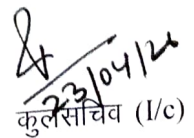 23/04/26
कुलसचिव (I/c)